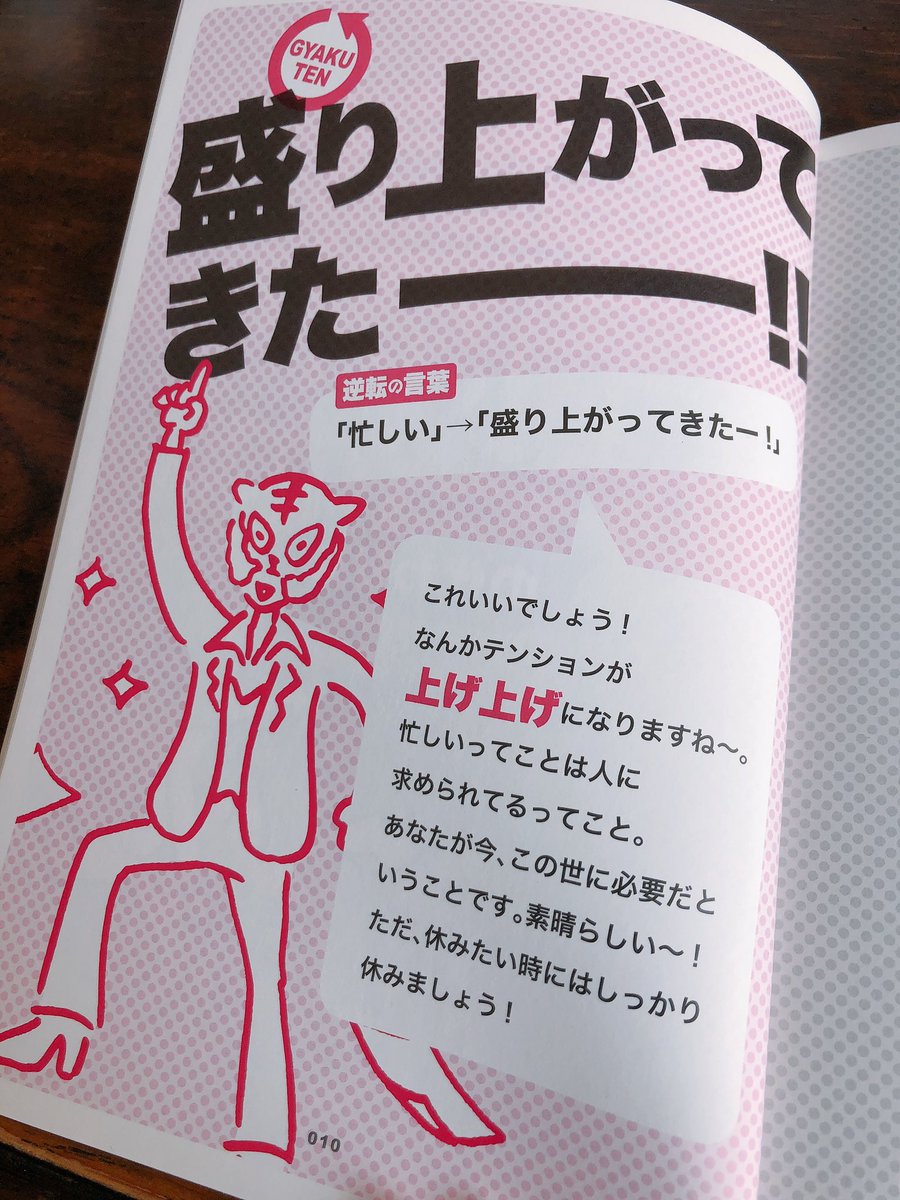 GYAKU
TEN
盛り上がって
きたー!!
逆転の言葉
「忙しい」→「盛り上がってきたー!」
これいいでしょう!
なんかテンションが
上げ上げになりますね〜。
忙しいってことは人に
求められてるってこと。
あなたが今、この世に必要だと
いうことです。素晴らしい〜!
ただ、休みたい時にはしっかり
休みましょう!
010